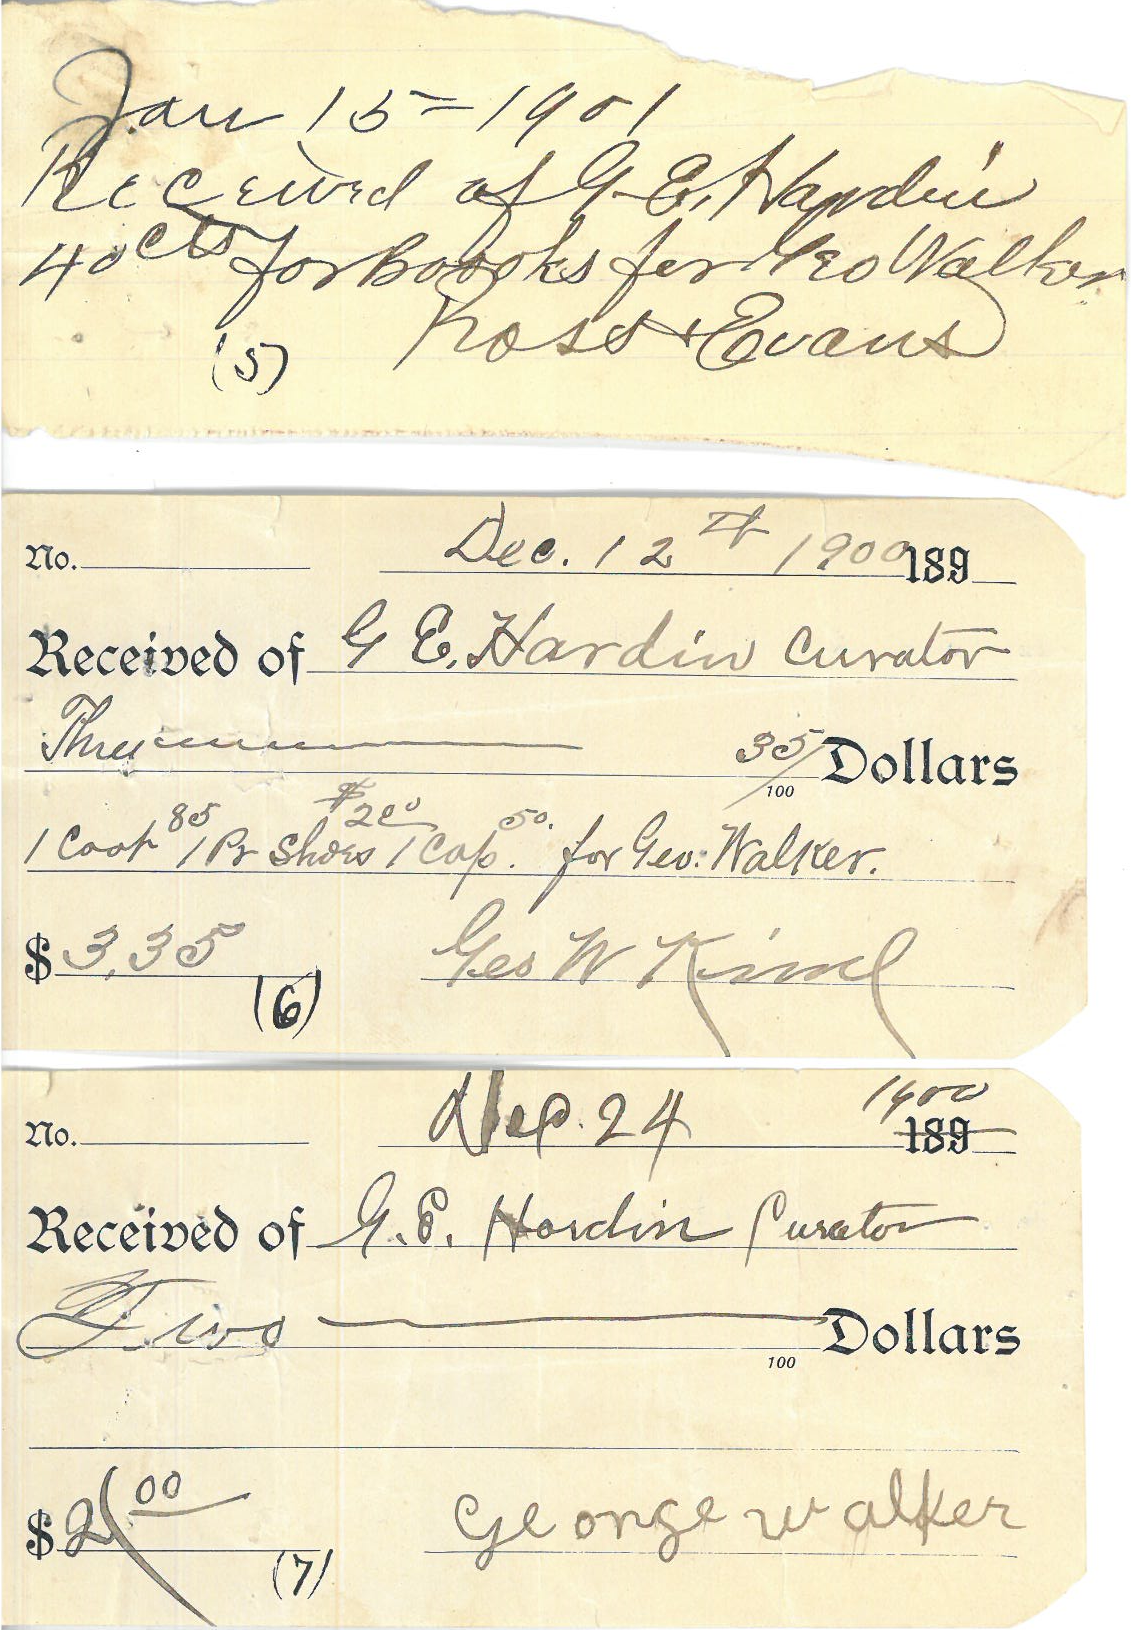 Jan 15 = 1901
Received of G. E. Hardin
40 cts for Boooks for Geo Walker
Ross & Evans
(5)
No. Dec. 12th 1900 189
Received of G E. Hardin Curator
Three 35/100 Dollars
1 Coat 85 1 Pr Shoes $2.00 1 Cap. 50. for Geo: Walker.
$ 3.35 Geo W Kimel
(6)
No. Dec. 24 1900 189
Received of G. E. Hardin Curator
Two 100 Dollars
$ 2.00 George Walker
(7)